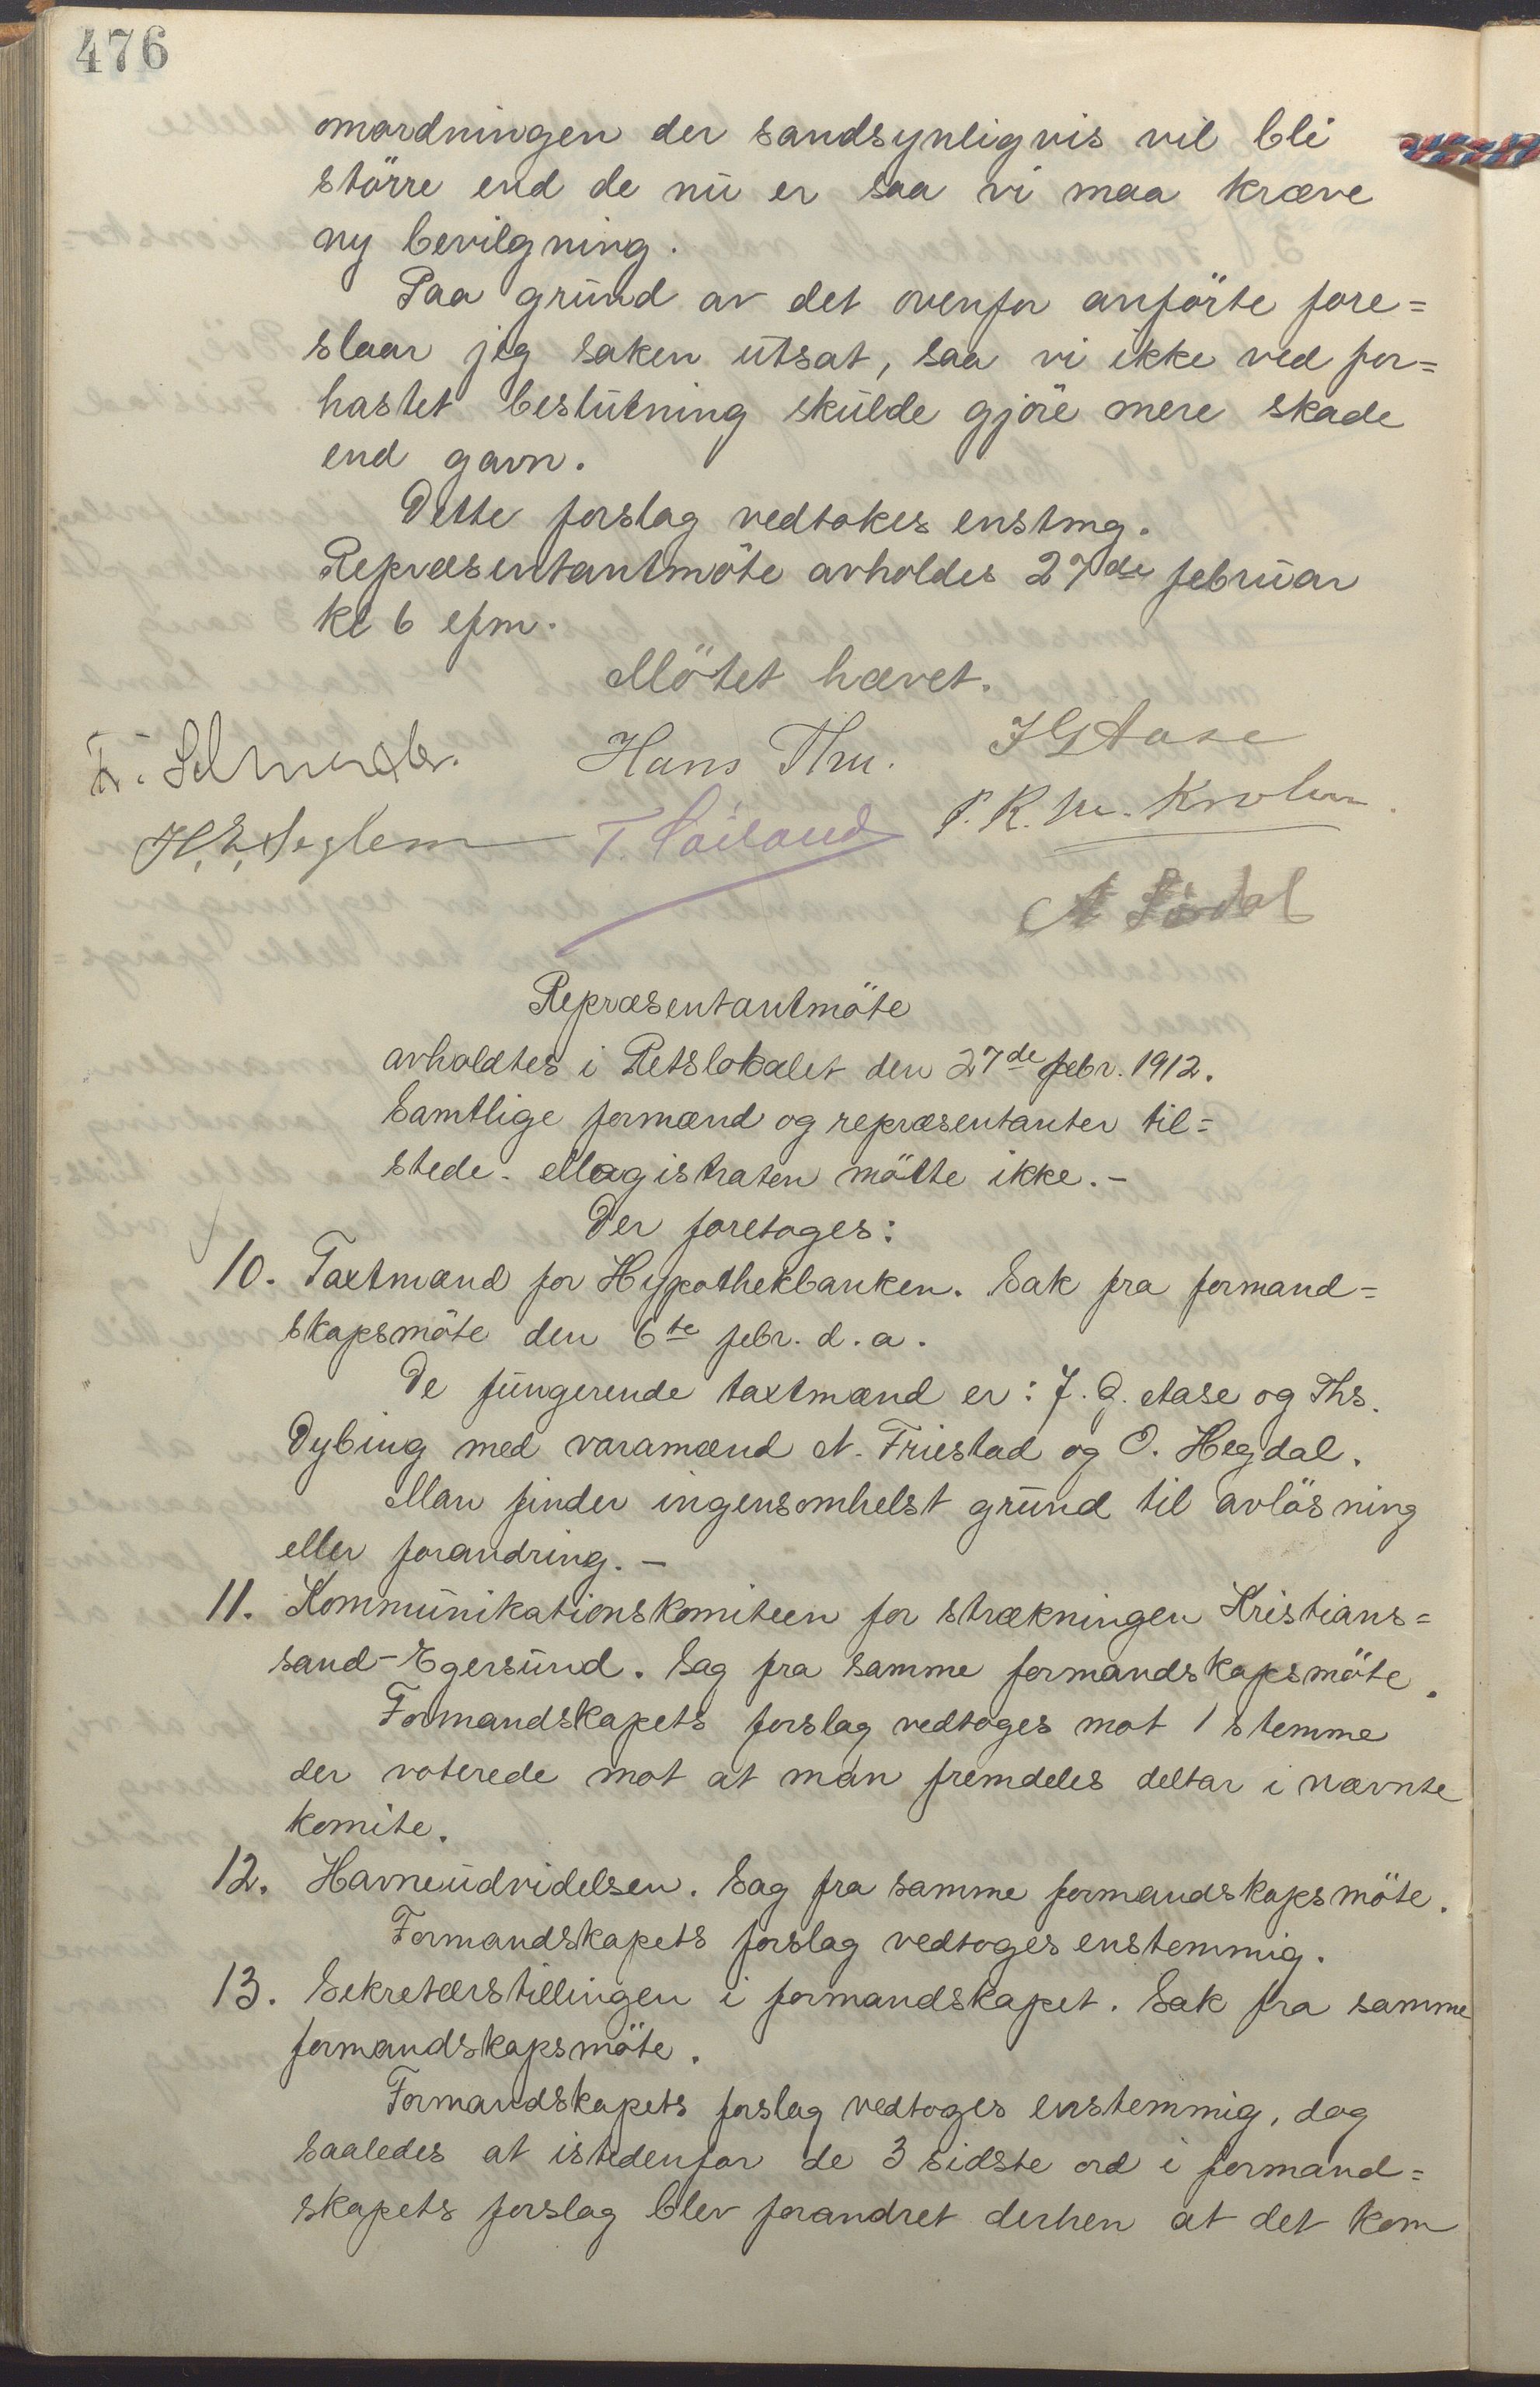 476
omordningen der sandsynligvis vil bli
større end de nu er saa vi maa kræve
ny bevilgning.
Paa grund av det ovenfor anførte fore=
slaar jeg saken utsat, saa vi ikke ved for=
hastet beslutning skulde gjøre mere skade
end gavn.
Dette forslag vedtokes enstmg.
Repræsentantmöte avholdes 27de februar
kl 6 efm.
Mötet hævet.
Hans Thu. J G Aase
H. E. Seglem T. Höiland P. R. M. Krohn.
A
Repræsentantmöte
avholdtes i Retslokalet den 27de febr. 1912.
Samtlige formænd og repræsentanter til=
stede. Magistraten mötte ikke. –
Der foretoges:
10. Taxtmænd for Hypothekbanken. Sak fra formand=
skapsmöte den 6te febr. d. a.
De fungerende taxtmænd er: J. G. Aase og Ths.
Dybing med varamænd N. Friestad og O. Hegdal.
Man finder ingensomhelst grund til avlösning
eller forandring. –
11. Kommunikationskomiteen for strækningen Kristians=
sand-Egersund. Sag fra samme formandskapsmöte.
Formandskapets forslag vedtoges mot 1 stemme
der voterede mot at man fremdeles deltar i nævnte
komite.
12. Havneudvidelsen. Sag fra samme formandskapsmöte.
Formandskapets forslag vedtoges enstemmig.
13. Sekretærstillingen i formandskapet. Sak fra samme
formandskapsmöte.
Formandskapets forslag vedtoges enstemmig, dog
saaledes at istedenfor de 3 sidste ord i formand=
skapets forslag blev forandret derhen at det kom